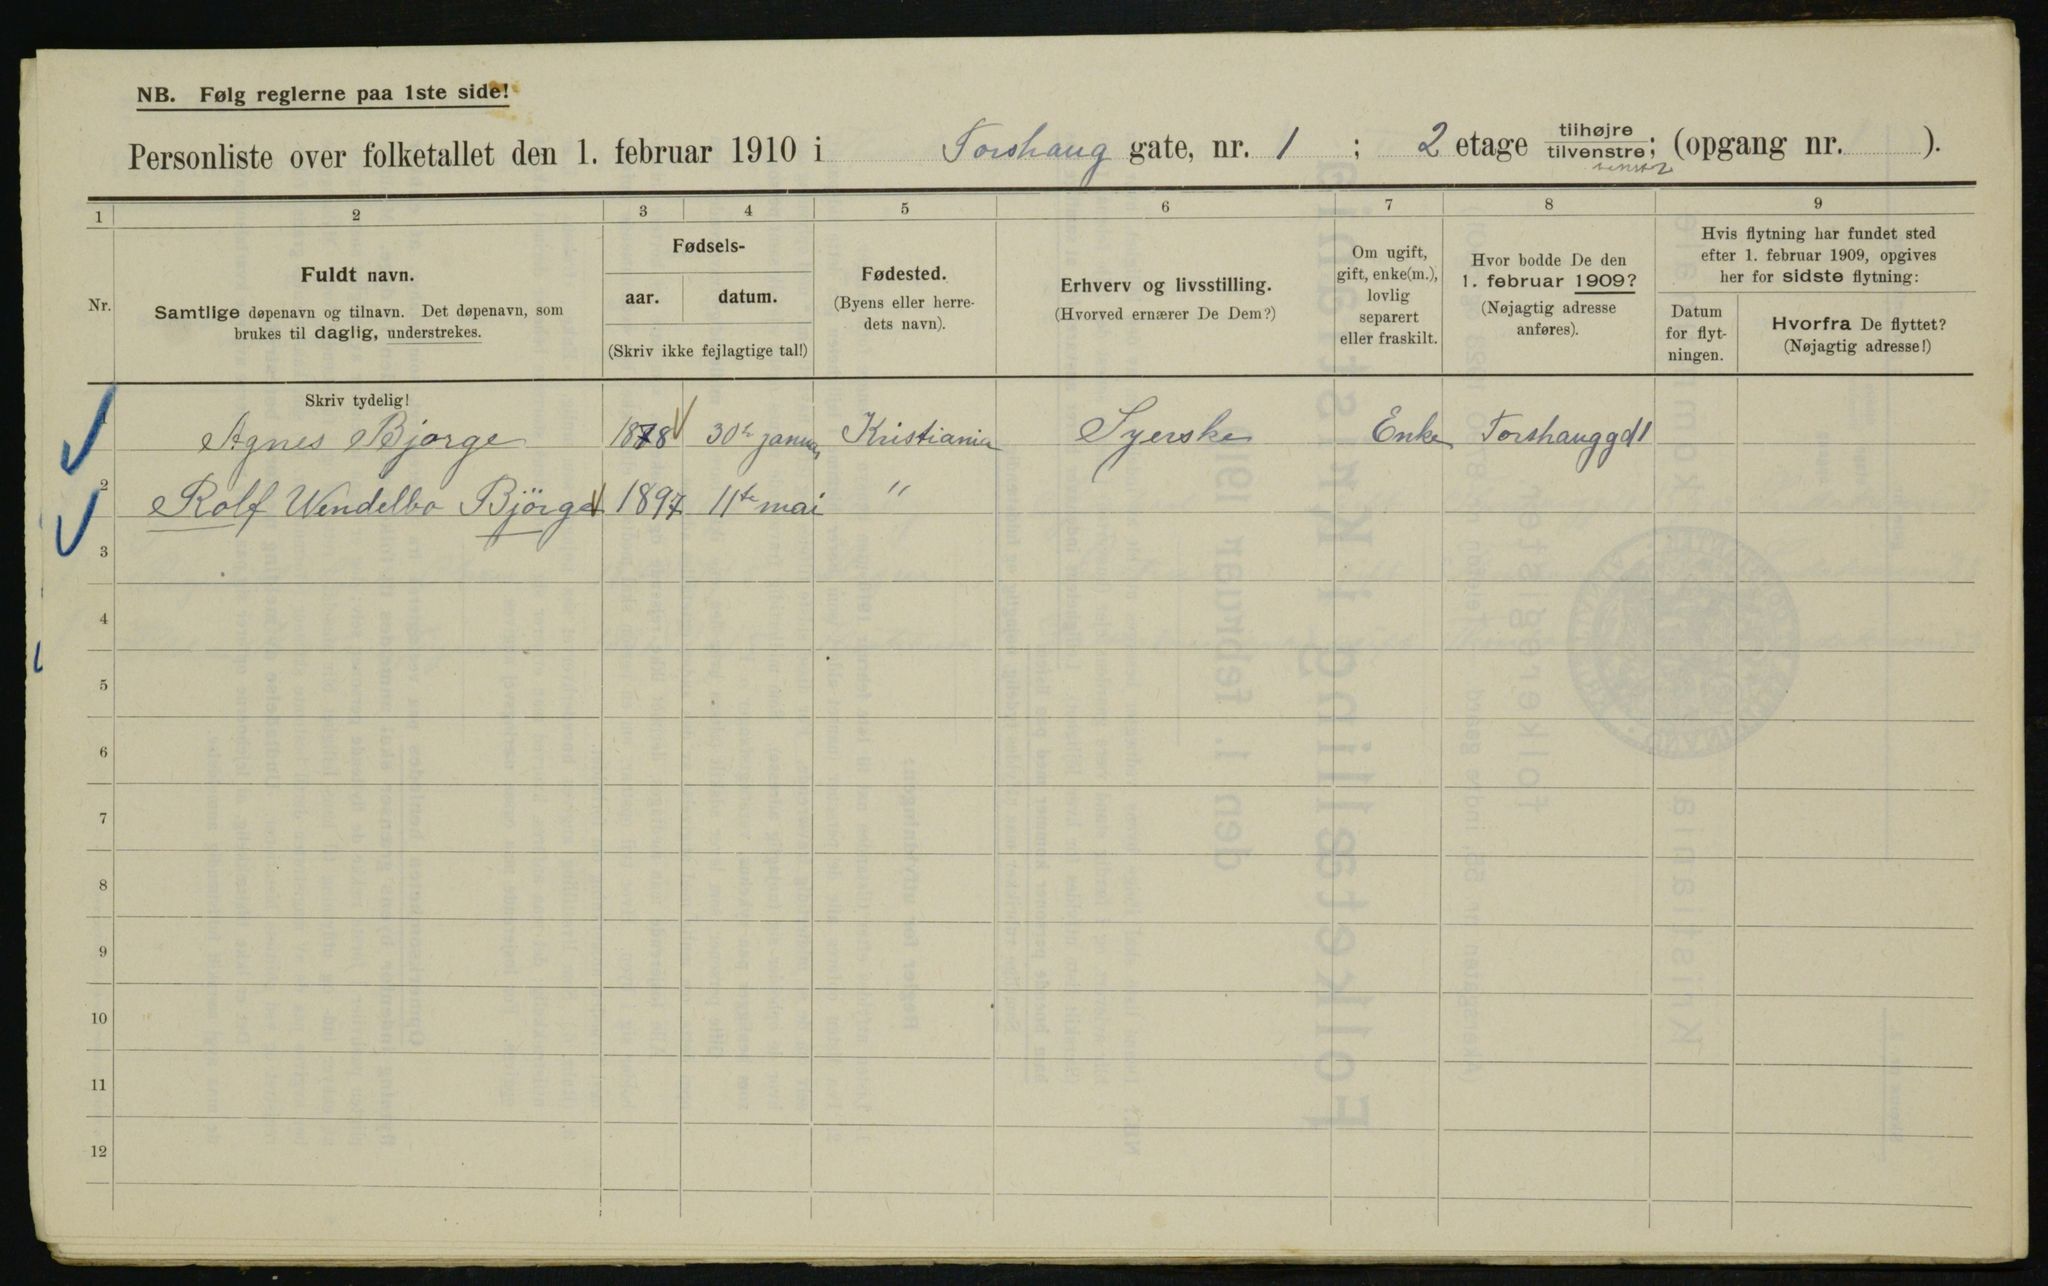 NB. Følg reglerne paa 1ste side!
Personliste over folketallet den 1. februar 1910 i Torshaug gate, nr. 1 ; 2 etage tilhøjre tilvenstre; (opgang nr. ).
1 2 3 4 5 6 7 8 9
Nr.
Fuldt navn.
Samtlige døpenavn og tilnavn. Det døpenavn, som
brukes til daglig, understrekes.
Fødsels-
aar. datum.
(Skriv ikke fejlagtige tal!)
Fødested.
(Byens eller herre-
dets navn).
Erhverv og livsstilling.
(Hvorved ernærer De Dem?)
Om ugift,
gift, enke(m.),
lovlig
separert
eller fraskilt.
Hvor bodde De den
1. februar 1909?
(Nøjagtig adresse
anføres).
Hvis flytning har fundet sted
efter 1. februar 1909, opgives
her for sidste flytning:
Datum
for flyt-
ningen.
Hvorfra De flyttet?
(Nøjagtig adresse!)
Skriv tydelig!
1 Agnes Bjørge 1878 30te januar Kristiania Syerske Enke Torshauggd 1
2 Rolf Wendelbo Björge 1897 11te mai "
3
4
5
6
7
8
9
10
11
12